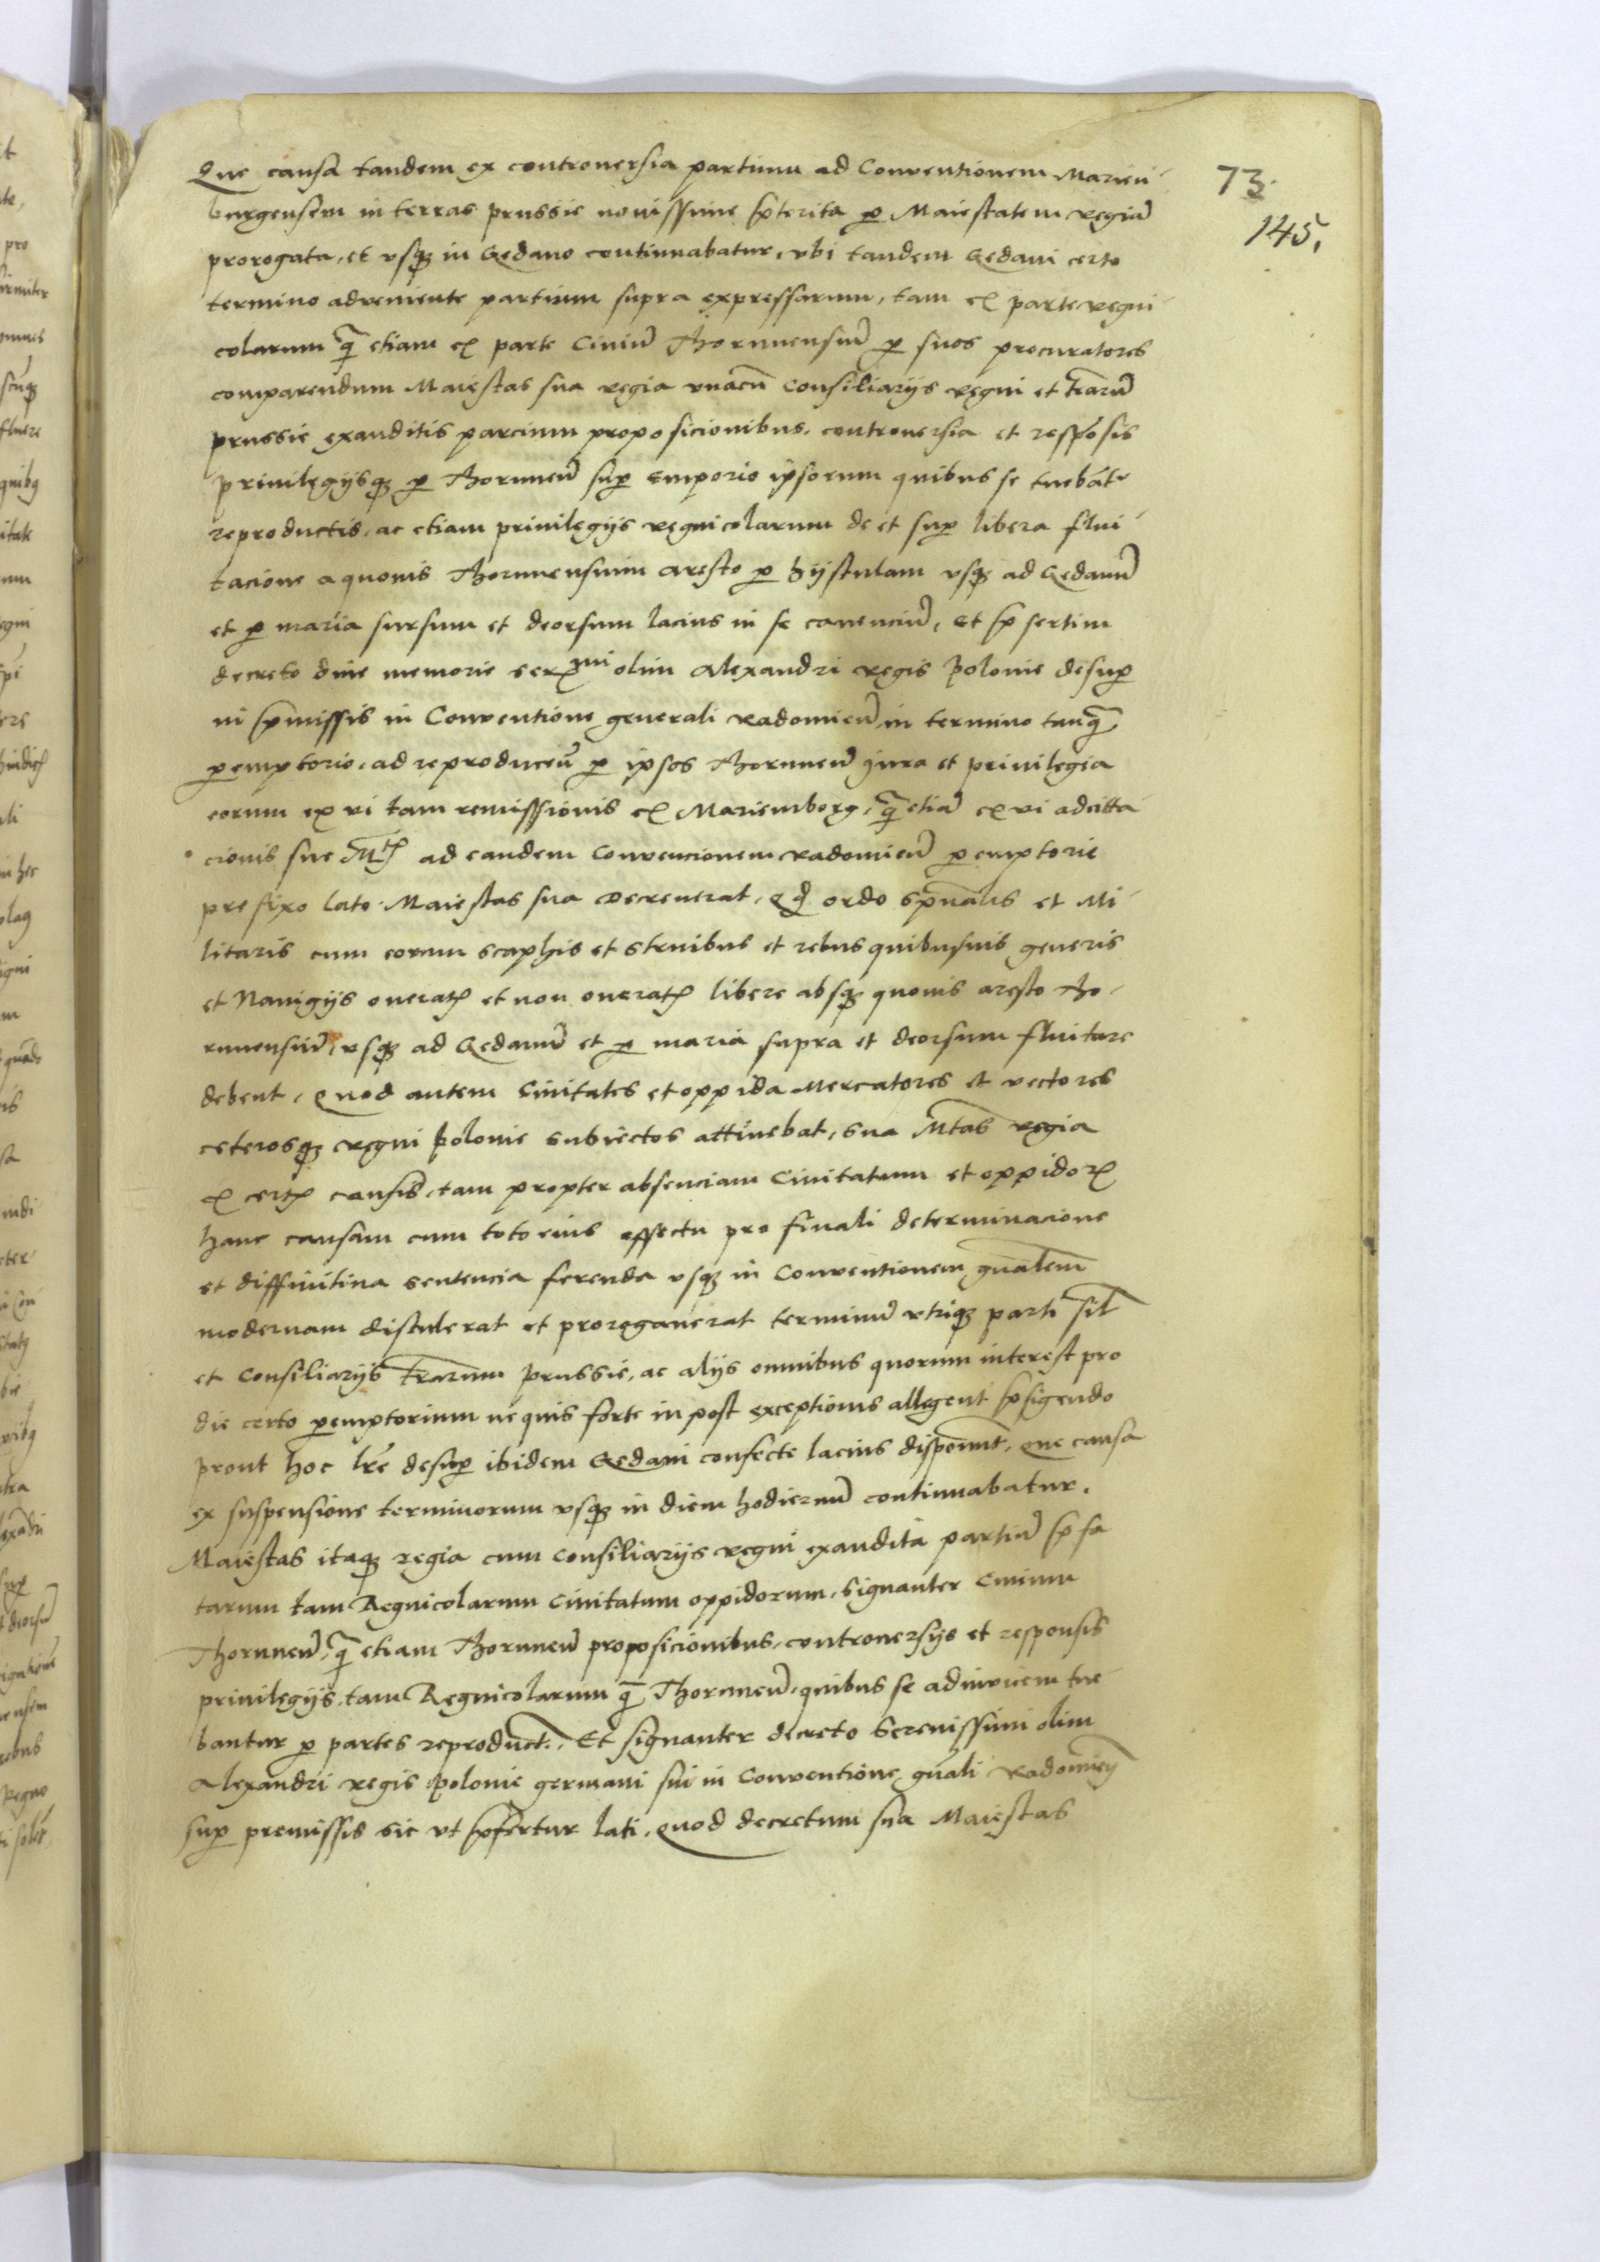 73.
145,
Que causa tandem ex controuersia partium ad Conuentionem Marien
burgensem in terras prussie nouissime p̱terita ꝑ Maiestatem regiā
prorogata, et vsqꝫ in Gedano continuabatur, vbi tandem Gedani certo
termino adveniente partium supra expressarum, tam ex parte regni
colarum q̃ etiam ex parte Ciuiū Thorunensiū ꝑ suos procuratores
comparendum Maiestas sua regia vnacū Consiliarijs regni et t̄rarū
prussie exauditis parcium proposicionibus, controuersia et respōsis
priuilegijsqꝫ ꝑ Thorunen̄ suꝑ Emporio ipsorum quibus se tuebāt᷑
reproductis, ac etiam priuilegijs regnicolarum de et suꝑ libera flui
tacione a quouis Thorunensium aresto ꝑ Vijstulam vsqꝫ ad Gedanū
et ꝑ maria sursum et deorsum lacius in se cauenciū, Et p̱sertim
decreto diue memorie serᵐⁱ olim Alexandri regis polonie desuꝑ
in p̱missis in Conuentione generali Radomien̄ in termino tanq̃
ꝑemptorio, ad reproducen̄ ꝑ ipsos Thorunen̄ Jura et priuilegia
eorum ex vi tam remissionis ex Mariemborg, q̃ etiā ex vi adcitta
cionis sue Mtꝭ ad eandem Conuencionem Radomien̄ ꝑemptorie
prefixo lato Maiestas sua Decreuerat, Qđ ordo sp̄ualis et Mi
litaris cum eorum scaphis et struibus et rebus quibusuis generis
et Nauigijs oneratꝭ et non oneratꝭ libere absqꝫ quouis aresto Tho
runensiū, vsqꝫ ad Gedanū et ꝑ maria supra et deorsum fluitare
debent, Quod autem Ciuitates et oppida Mercatores et vectores
ceterosqꝫ regni polonie subiectos attinebat, sua Mtas̄ regia
ex certꝭ causis, tam propter absenciam Ciuitatum et oppidoꝝ
hanc causam cum toto eius effectu pro finali determinacione
et diffinitiua sentencia ferenda vsqꝫ in Conuentionem gn̄alem
modernam distulerat et prorogauerat terminū vtriqꝫ parti sil̄
et Consiliarijs t̄rarum prussie, ac alijs omnibus quorum interest pro
die certo ꝑemptorium ne quis forte in post exceptionis allegent p̱figendo
prout hoc lr̄e desuꝑ ibidem Gedani confecte lacius disponūt, Que causa
ex suspensione terminorum vsqꝫ in diem hodiernū continuabatur.
Maiestas itaqꝫ regia cum Consiliarijs regni exaudita partiū p̱fa
tarum tam Regnicolarum Ciuitatum oppidorum, signanter Ciuium
Thorunen̄, q̃ etiam Thorunen̄ proposicionibus, controuersijs et responsis
priuilegijs, tam Regnicolarum q̃ Thorunen̄, quibus se adinuicem tue
bantur ꝑ partes reproduct., Et signanter decreto Serenissimi olim
Alexandri regis polonie germani sui in Conuentione gn̄ali Radomien̄
suꝑ premissis sic vt p̱fertur lati, Quod decretum sua Maiestas